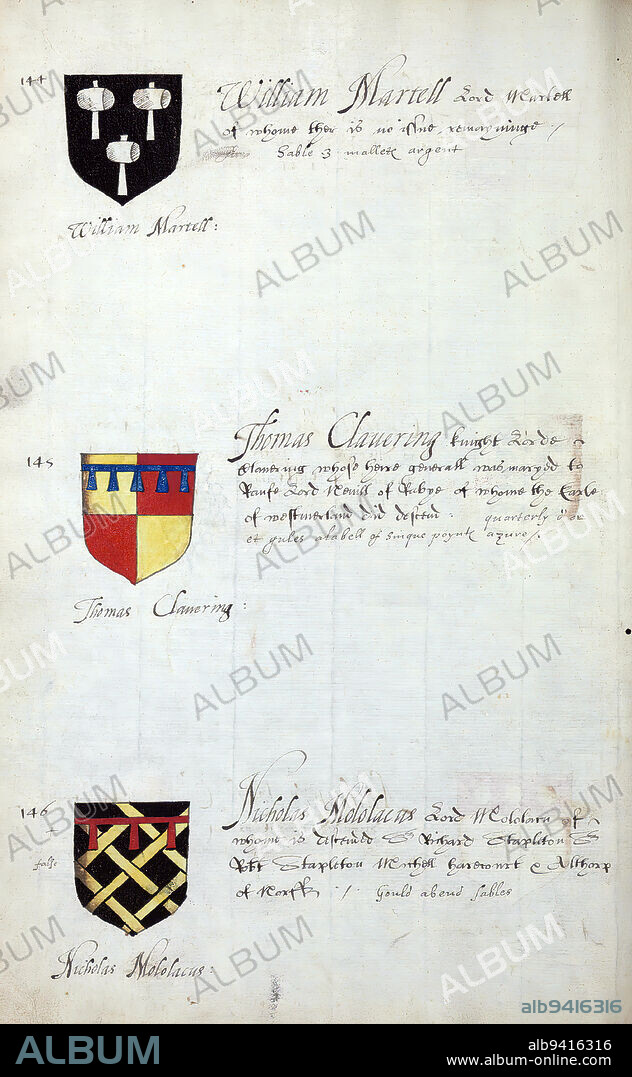 144
William Martell Lord Martell
of whome ther is no issue remayninge
Sable 3 malletts argent
William Martell:
145
Thomas Clavering knight Lorde
Clavering whose heire generall was maryed to
Raufe Lord Nevill of Rabye of whome the Earle
of westmerland did descend. quarterly d'or
et gules a labell of sinque poynts azure
Thomas Clavering:
146
false
Nicholas Mololacus Lord Mololacu of
whome is discended Sr Richard Stapleton Sr
Robt Stapleton Michell harecourt & Althorp
of Norff. Gould a bend sables
Nicholas Mololacus:
ALBUM
alb9416316
ALBUM
alb9416316
www.album-online.com